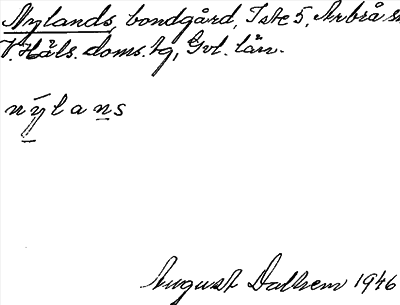 Nylands, bondgård, I ste 5, Arbrå sn
V. Häls. doms. tg, Gvl. län.
nýlans
August Dalhem 1946